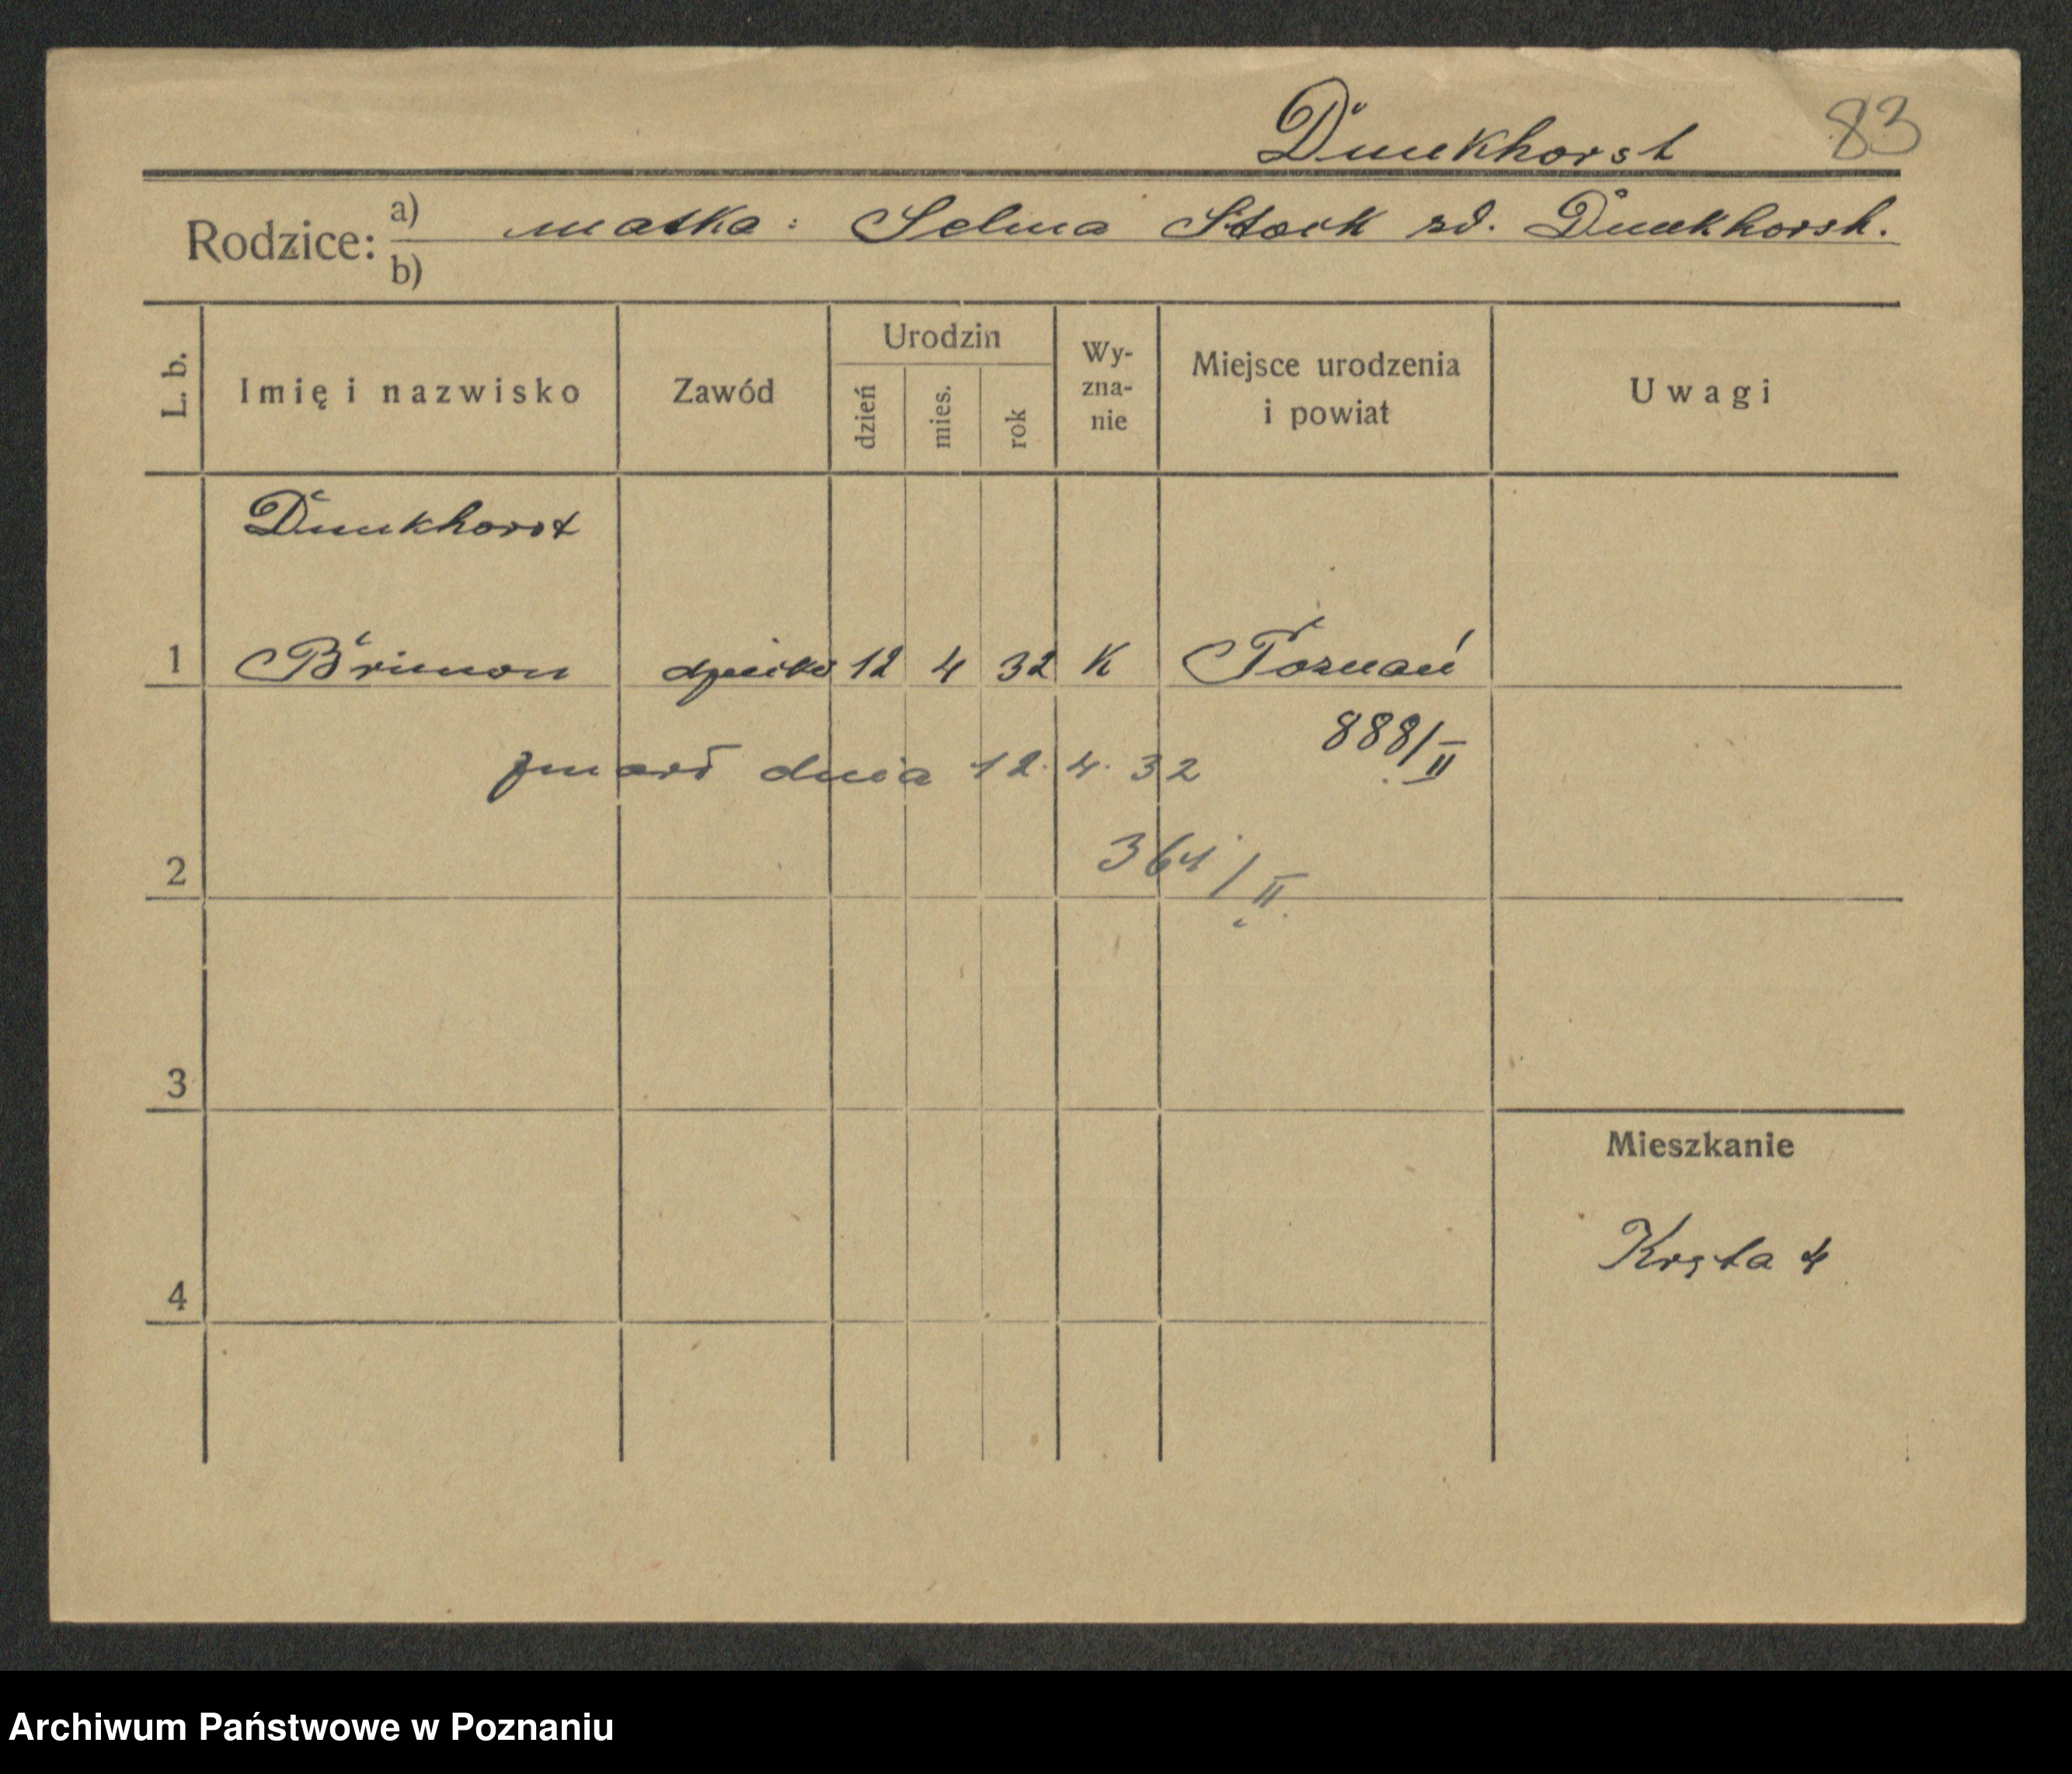 Dunkhorst 83
Rodzice: a) matka: Selma Stock zd. Dunkhorst.
b)
L. b. Imię i nazwisko Zawód Urodzin dzień mies. rok Wy-zna-nie Miejsce urodzenia i powiat Uwagi
Dunkhorst
1 Brunon dziecko 12 4 32 K Poznań
888/II
zmarł dnia 12. 4. 32
364/II
2
3
Mieszkanie
Kręta 4
4
Archiwum Państwowe w Poznaniu